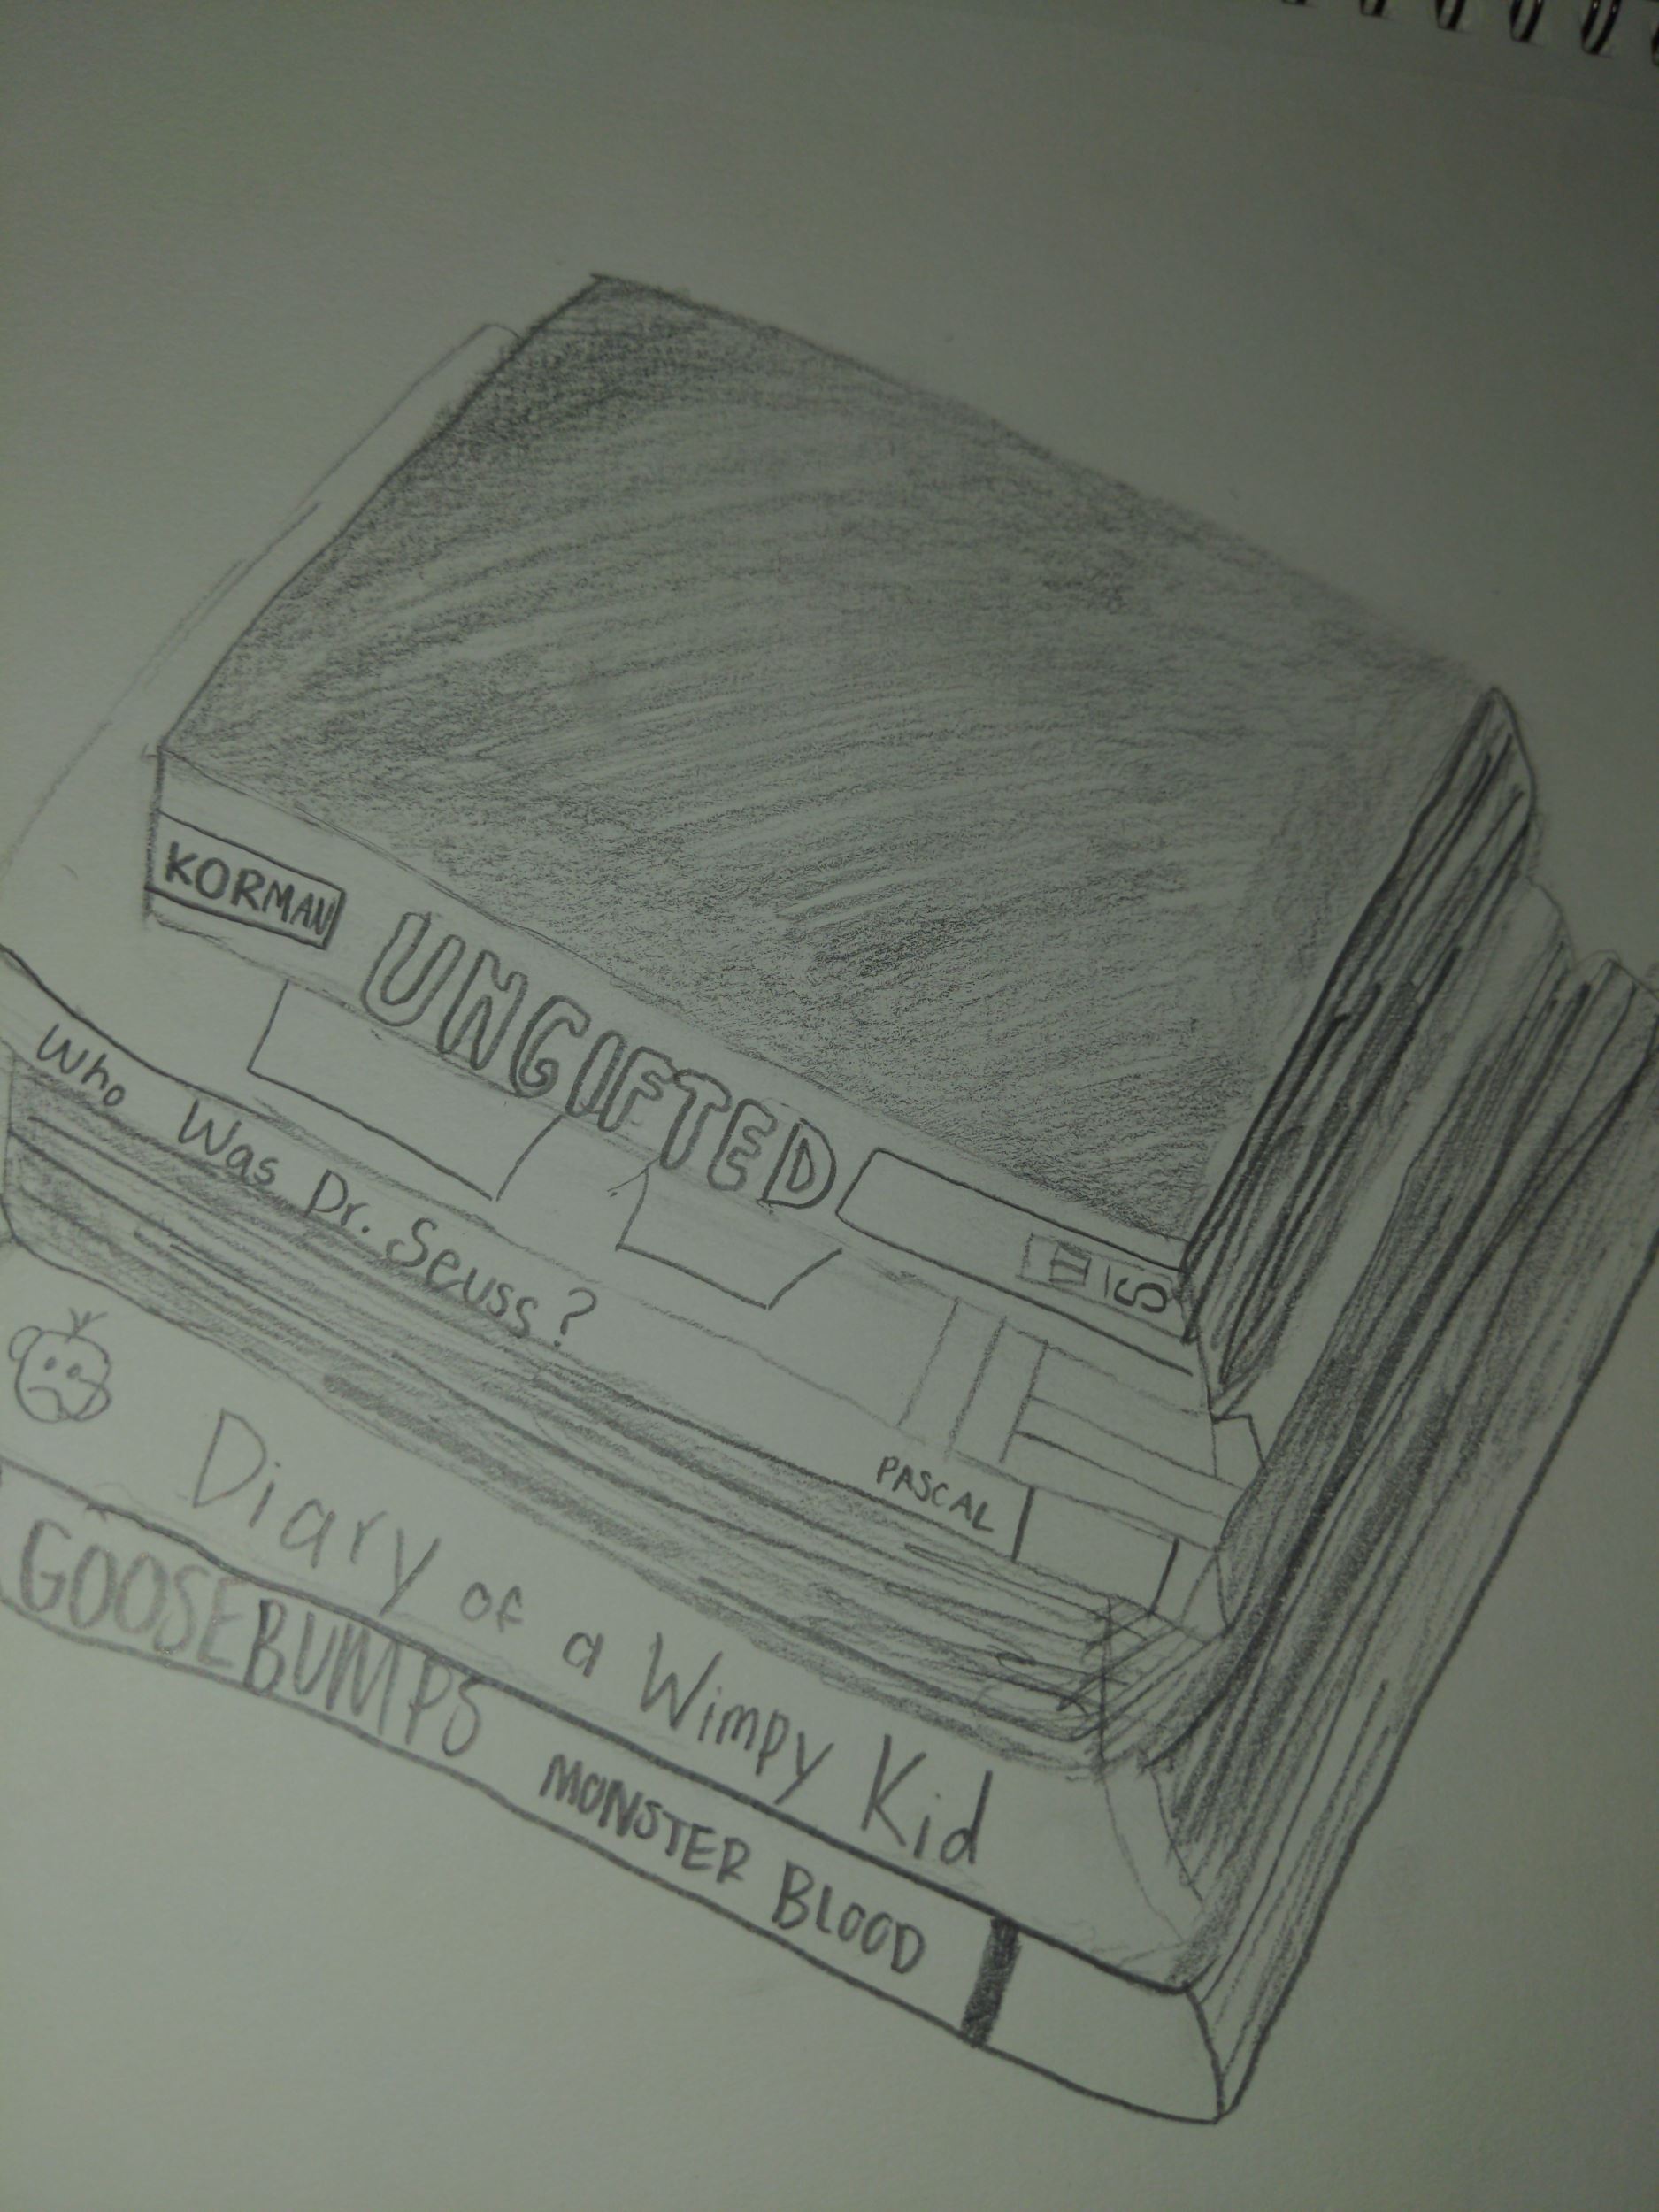 KORMAN
UNGIFTED
Who Was Dr. Seuss?
PASCAL
Diary of a Wimpy Kid
GOOSEBUMPS MONSTER BLOOD